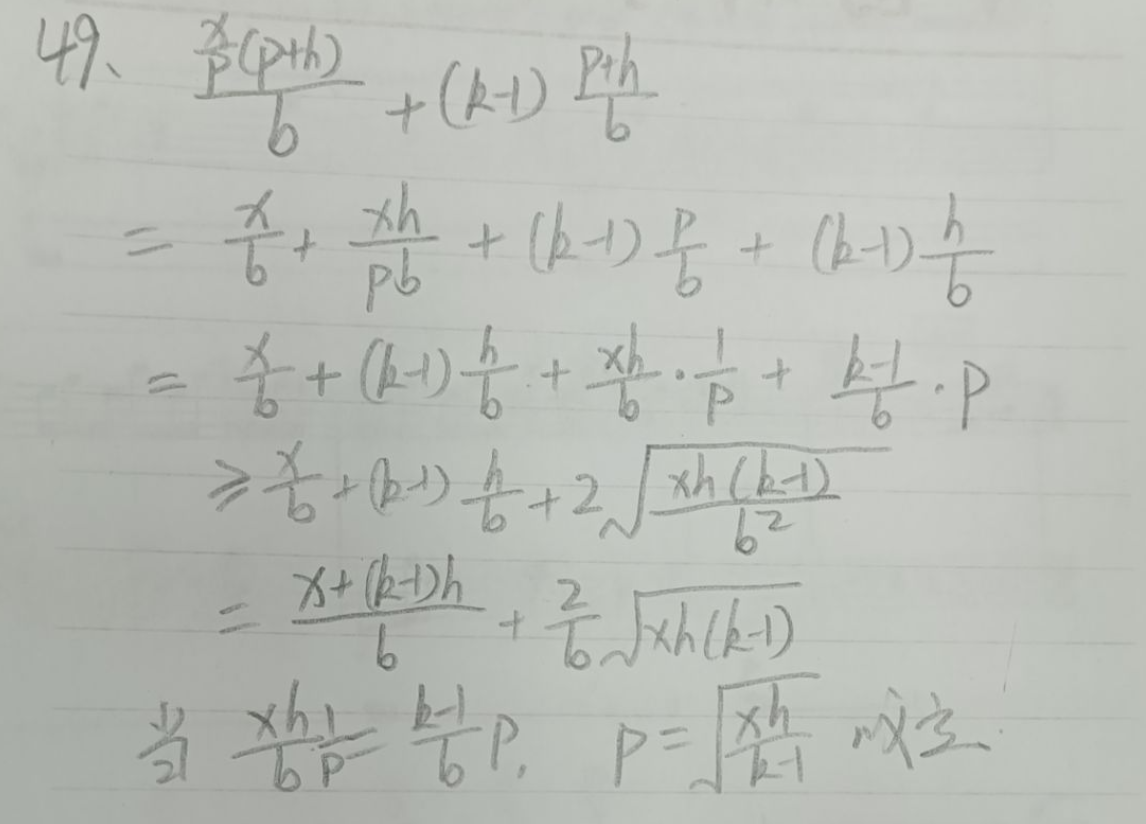 49、 \frac{\frac{x}{p}(p+h)}{b} + (k-1) \frac{p+h}{b}
= \frac{x}{b} + \frac{xh}{pb} + (k-1) \frac{p}{b} + (k-1) \frac{h}{b}
= \frac{x}{b} + (k-1) \frac{h}{b} + \frac{xh}{b} · \frac{1}{p} + \frac{k-1}{b} · p
≥ \frac{x}{b} + (k-1) \frac{h}{b} + 2\sqrt{\frac{xh(k-1)}{b^2}}
= \frac{x+(k-1)h}{b} + \frac{2}{b}\sqrt{xh(k-1)}
当 \frac{xh}{b}\frac{1}{p} = \frac{k-1}{b}p, p = \sqrt{\frac{xh}{k-1}}